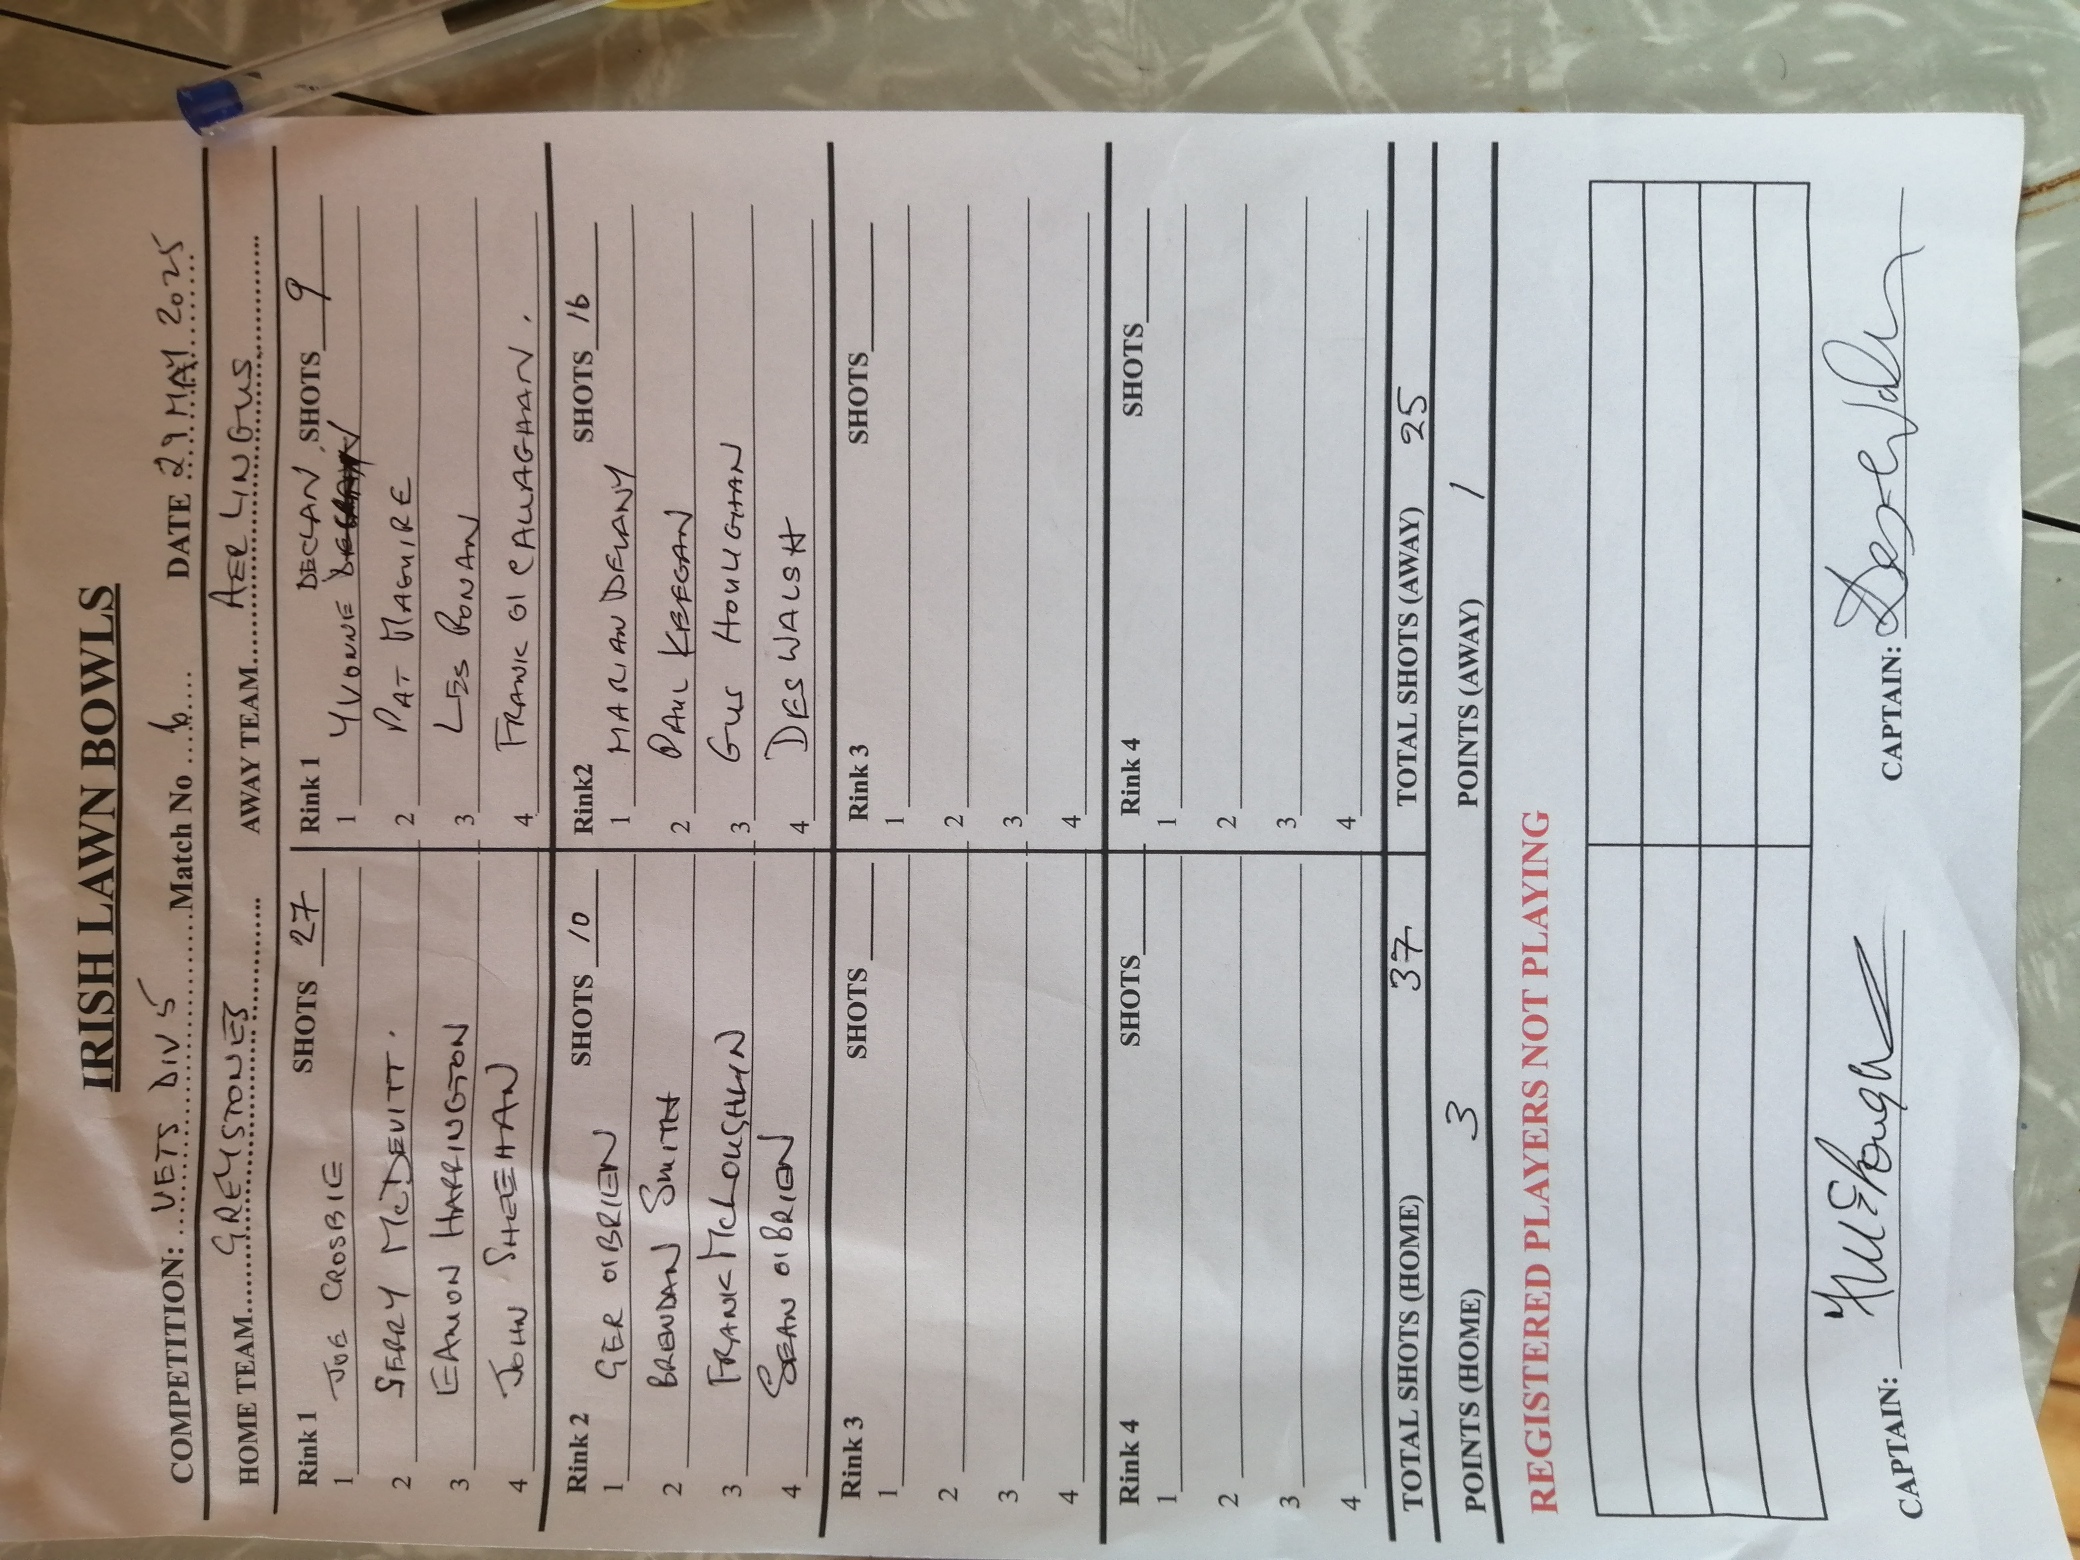 IRISH LAWN BOWLS
COMPETITION: VETS DIV 5 Match No 6 DATE 29 MAY 2025
HOME TEAM GREYSTONES AWAY TEAM AER LINGUS
Rink 1 SHOTS 27 Rink 1 DECLAN SHOTS 9
1 JOE CROSBIE 1 YVONNE
2 GERRY McDEVITT. 2 PAT MAGUIRE
3 EAMON HARRINGTON 3 LES RONAN
4 JOHN SHEEHAN 4 FRANK O'CALLAGHAN.
Rink 2 SHOTS 10 Rink2 SHOTS 16
1 GER O'BRIEN 1 MARIAN DELANY
2 BRENDAN SMITH 2 PAUL KEEGAN
3 FRANK McLOUGHLIN 3 GUS HOULIGHAN
4 SEAN O'BRIEN 4 DES WALSH
Rink 3 SHOTS Rink 3 SHOTS
1 1
2 2
3 3
4 4
Rink 4 SHOTS Rink 4 SHOTS
1 1
2 2
3 3
4 4
TOTAL SHOTS (HOME) 37 TOTAL SHOTS (AWAY) 25
POINTS (HOME) 3 POINTS (AWAY) 1
REGISTERED PLAYERS NOT PLAYING
CAPTAIN: CAPTAIN: Des Walsh